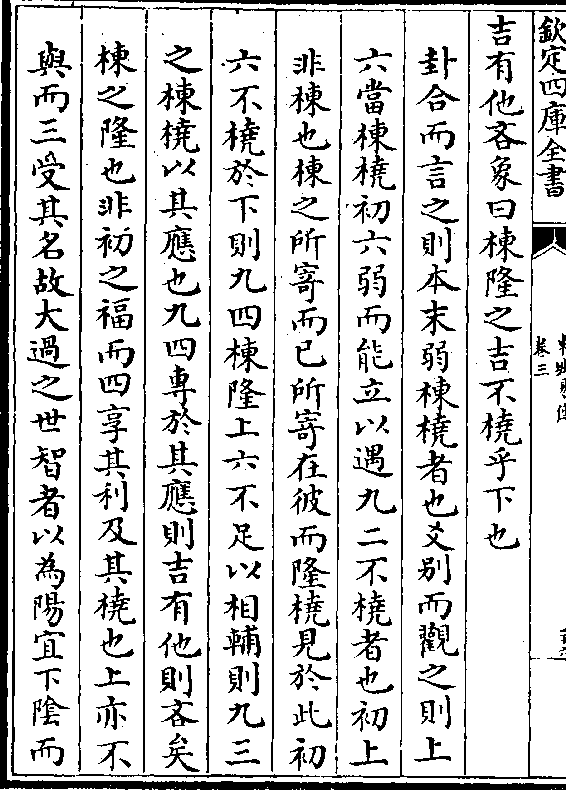 欽定四庫全書
卷三
吉有他吝象曰棟隆之吉不橈乎下也
卦合而言之則本末弱棟橈者也爻别而觀之則上
六當棟橈初六弱而能立以遇九二不橈者也初上
非棟也棟之所寄而已所寄在彼而隆橈見於此初
六不橈於下則九四棟隆上六不足以相輔則九三
之棟橈以其應也九四專於其應則吉有他則吝矣
棟之隆也非初之福而四享其利及其橈也上亦不
與而三受其名故大過之世智者以為陽宜下隂而